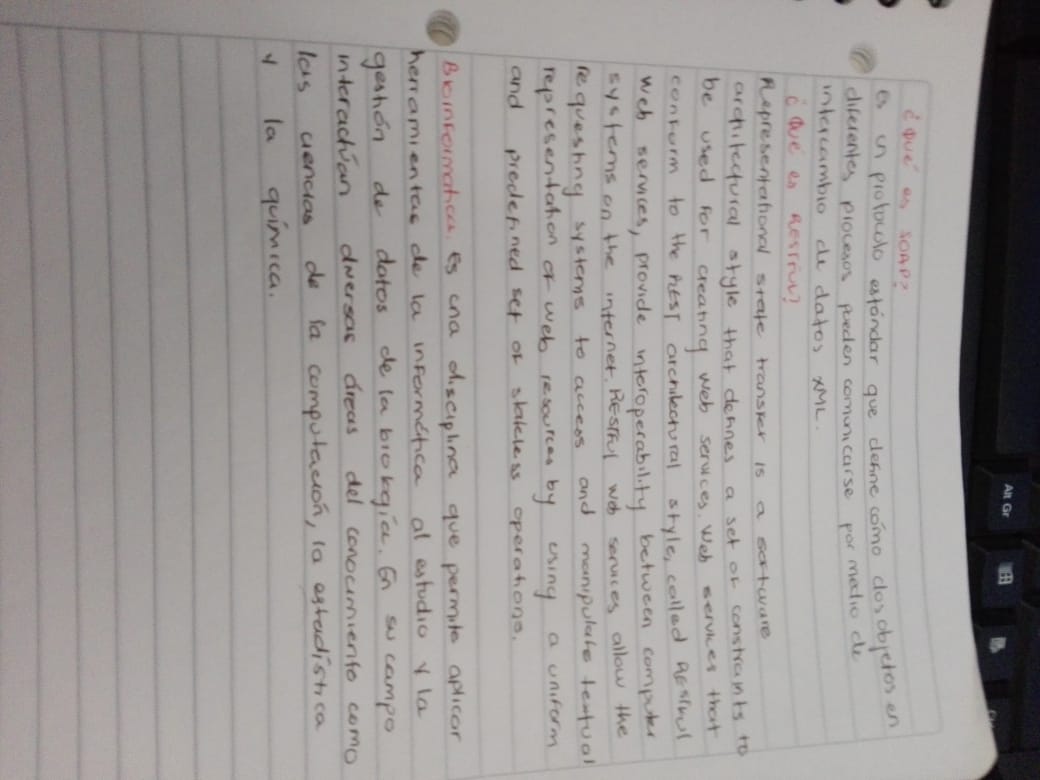 ¿Qué es SOAP?
es un protocolo estándar que define cómo dos objetos en
diferentes procesos pueden comunicarse por medio de
intercambio de datos XML.
¿Qué es RESTful?
Representational state transfer is a software
architectural style that defines a set of constraints to
be used for creating web services. Web services that
conform to the REST architectural style, called RESTful
web services, provide interoperability between computer
systems on the internet. RESTful web services allow the
requesting systems to access and manipulate textual
representation of web resources by using a uniform
and predefined set of stateless operations.
Bioinformática. Es una disciplina que permite aplicar
herramientas de la informática al estudio y la
gestión de datos de la biología. En su campo
interactúan diversas áreas del conocimiento como
las ciencias de la computación, la estadística
y la química.
Alt Gr